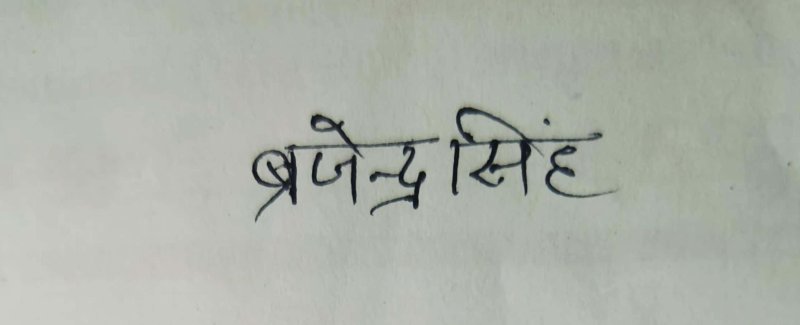 ब्रजेन्द्र सिंह